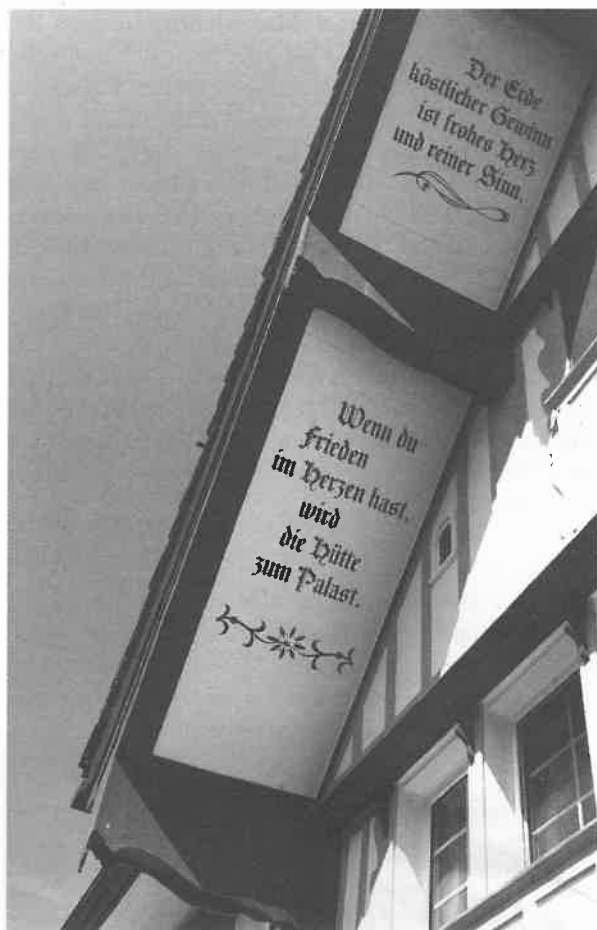 Der Erde
köstlicher Gewinn
ist frohes Herz
und reiner Sinn.
Wenn du
Frieden
im Herzen hast,
wird
die Hütte
zum Palast.